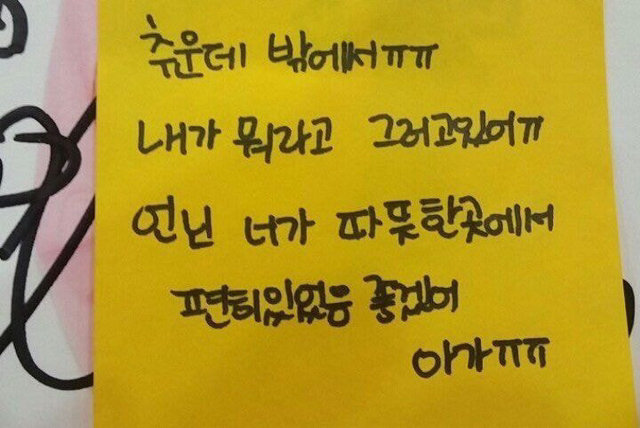 추운데 밖에서ㅠㅠ
내가 뭐라고 그러고있어ㅠ
언닌 너가 따뜻한곳에서
편히있었음 좋겠어
아가ㅠㅠ